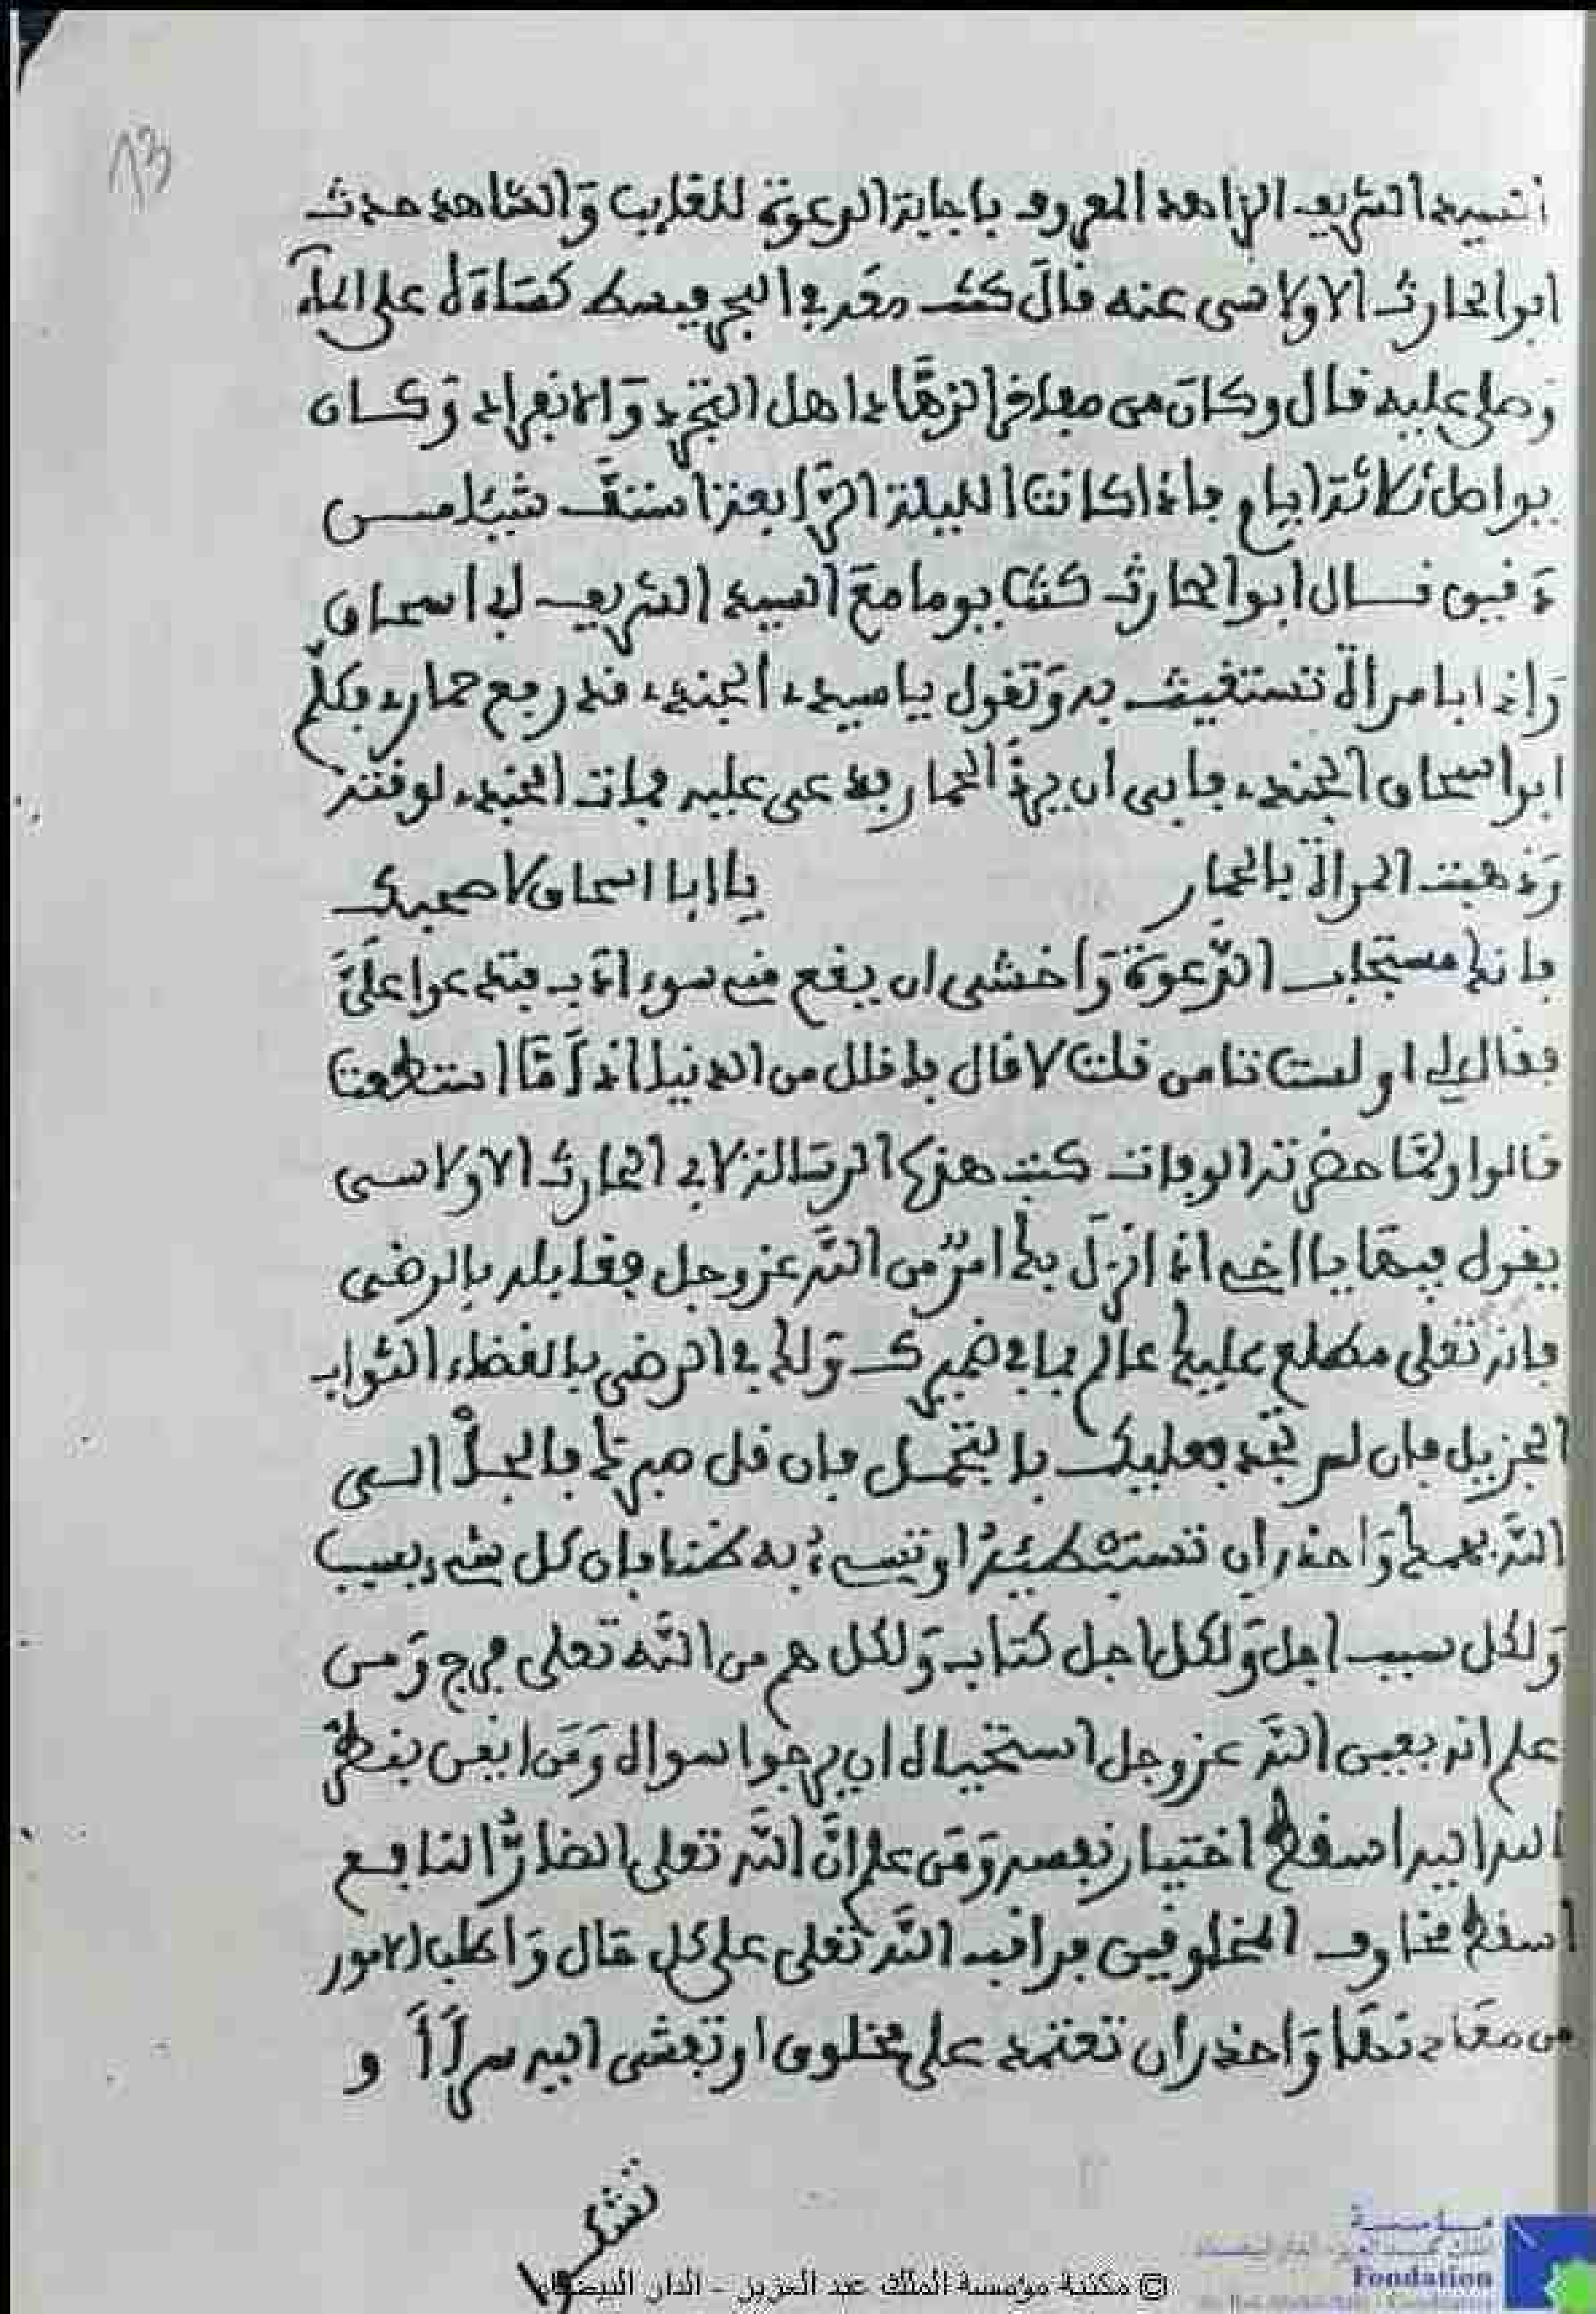 السيد الشريف الزاهد المعروف باجابة الدعوة للغايب وَالشاهد حدث
ابو الحارث الاولاسى عنه قالَ كنت معه في البحر فبسط كساءَهُ على الماءِ
وَصلى عليه قال وكانَ من الزهَّاد اهل التجرد وَالانفراد وَكان
يواصل ثلاثة ايام فاذا كانت الليلة الرَّابعة استفَّ شيئا من
دَقيق قال ابو الحارث كنت يوما معَ السيد الشريف ابي اسحاق
وَاذا بامرأة تستغيث به وَتقول يا سيدي الجندي قد رفع حماري فكلَّم
ابو اسحاق الجندي فابى ان يردَّ الحمار فدعى عليه فمات الجندي لوقته
وَذهبت المرأة بالحمار يا ابا اسحاق لا صحبتك
فانك مستجاب الدَّعوة وَاخشى ان يقع مني سوء ادَب فتدعوا عليَّ
فقال لي او لست تامن قلت لا قال فاقلل من الدنيا اذًا مَّا استطعت
قالوا ولمَّا حضرته الوفات كتب هذه الرسالة لابي الحارث الاولاسى
يقول فيهَا يا اخي اذا نزلَ بك امرٌ من اللَّه عز وجل فقابله بالرضى
فانه تعلى مطلع عليك عالم بما في ضميرك وَلك في الرضى بالقضاء الثواب
الجزيل فان لم تجد فعليك بالتحمل فان قل صبرك فالجأ الى
اللَّه بهمك وَاحذر ان تستبطئهُ او تسيء به ظنا فان لكل شيء سبب
وَلكل سبب اجل وَلكل اجل كتاب وَلكل هم من اللَّه تعلى فرج وَمن
علم انه بعين اللَّه عز وجل استحيا ان يرجوا سواه وَمَن ايقن بنظر
اللَّه اليه اسقط اختيار نفسه وَمَن علم انَّ اللَّه تعلى الضارُّ النافع
اسقط مخاوف المخلوقين فراقب اللَّه تعلى على كل حَال وَاطلب الامور
من معَادنهَا وَاحذر ان تعتمد على مخلوق او تفشى اليه سرًّا و
تشكوا
© مكتبة مؤسسة الملك عبد العزيز - الدار البيضاء
Fondation